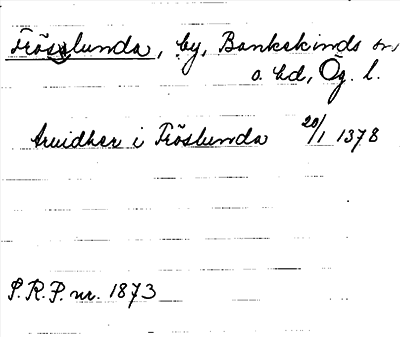 Fröslunda, by, Bankekinds sn
o. hd, Ög. l.
Arvidher i Fröslunda 20/1 1378
S.R.P. nr. 1873